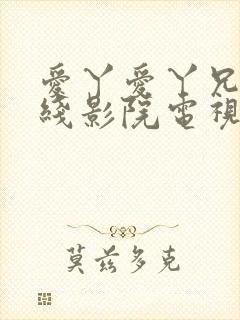 愛丫愛丫兄
綫影院電視
莫兹多克